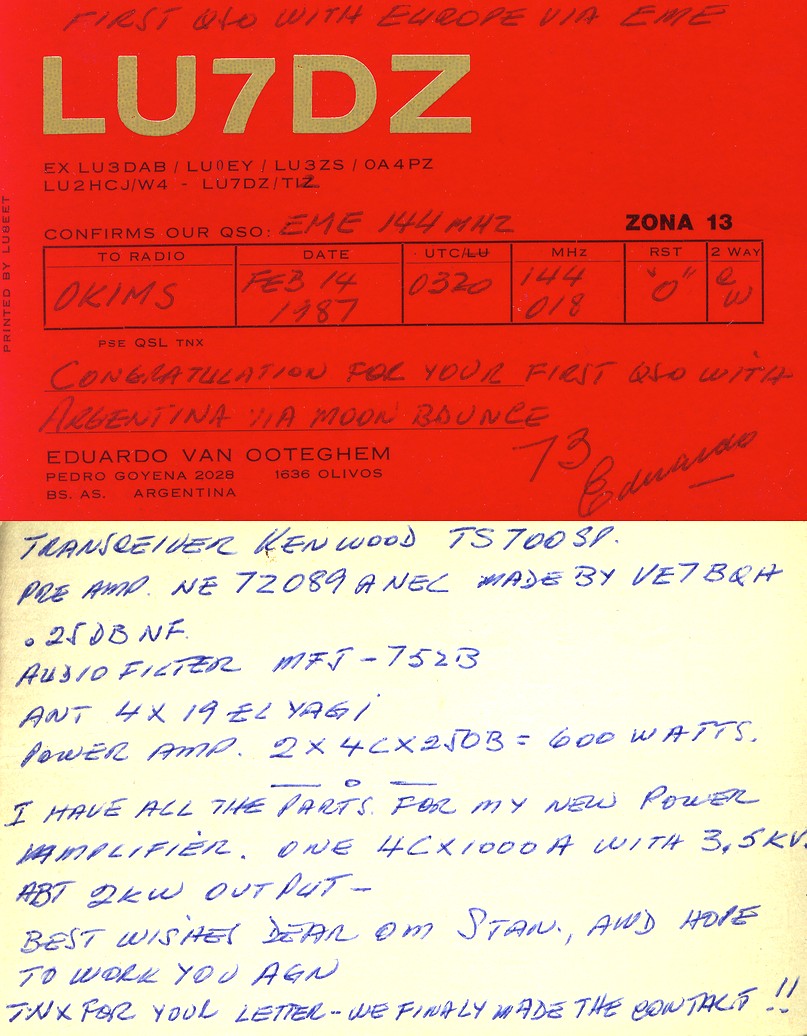 FIRST QSO WITH EUROPE VIA EME
LU7DZ
EX LU3DAB / LU0EY / LU3ZS / OA4PZ
LU2HCJ/W4 - LU7DZ/TI2
CONFIRMS OUR QSO: EME 144 MHZ
ZONA 13
TO RADIO DATE UTC/LU MHz RST 2 WAY
OK1MS FEB 14 1987 0320 144 018 "O" CW
PSE QSL TNX
CONGRATULATION FOR YOUR FIRST QSO WITH
ARGENTINA VIA MOON BOUNCE
73 Eduardo
EDUARDO VAN OOTEGHEM
PEDRO GOYENA 2028 1636 OLIVOS
BS. AS. ARGENTINA
PRINTED BY LU8EET
TRANSCEIVER KENWOOD TS700SP.
PRE AMP. NE 72089 A NEC MADE BY VE7BQH
.25DB NF.
AUDIO FILTER MFJ-752B
ANT 4X19 EL YAGI
POWER AMP. 2X4CX250B = 600 WATTS.
— o —
I HAVE ALL THE PARTS FOR MY NEW POWER
AMPLIFIER. ONE 4CX1000A WITH 3,5KV.
ABT 2KW OUTPUT-
BEST WISHES DEAR OM STAN., AND HOPE
TO WORK YOU AGN
TNX FOR YOUR LETTER-WE FINALY MADE THE CONTACT!!